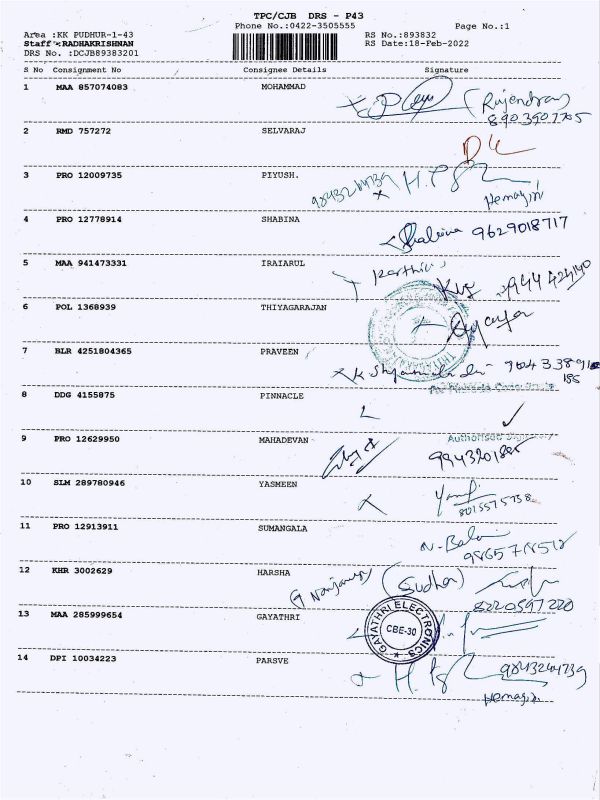 TPC/CJB DRS - P43
Phone No.:0422-3505555 Page No.:1
Area :KK PUDHUR-1-43 RS No.:893832
Staff :RADHAKRISHNAN RS Date:18-Feb-2022
DRS No. :DCJB89383201
S No Consignment No Consignee Details Signature
1 MAA 857074083 MOHAMMAD
(Rajendran)
2 RMD 757272 SELVARAJ
3 PRO 12009735 PIYUSH.
9843264739 Hemagiri
4 PRO 12778914 SHABINA
Shabina 9629018717
5 MAA 941473331 IRAIARUL
Karthic
6 POL 1368939 THIYAGARAJAN
7 BLR 4251804365 PRAVEEN
8 DDG 4155875 PINNACLE
Authorised
9 PRO 12629950 MAHADEVAN
10 SLM 289780946 YASMEEN
8015575738
11 PRO 12913911 SUMANGALA
12 KHR 3002629 HARSHA
(Sudha)
8220597220
13 MAA 285999654 GAYATHRI
GAYATHRI ELECTRONICS
CBE-30
14 DPI 10034223 PARSVE
9843264739
Hemagiri